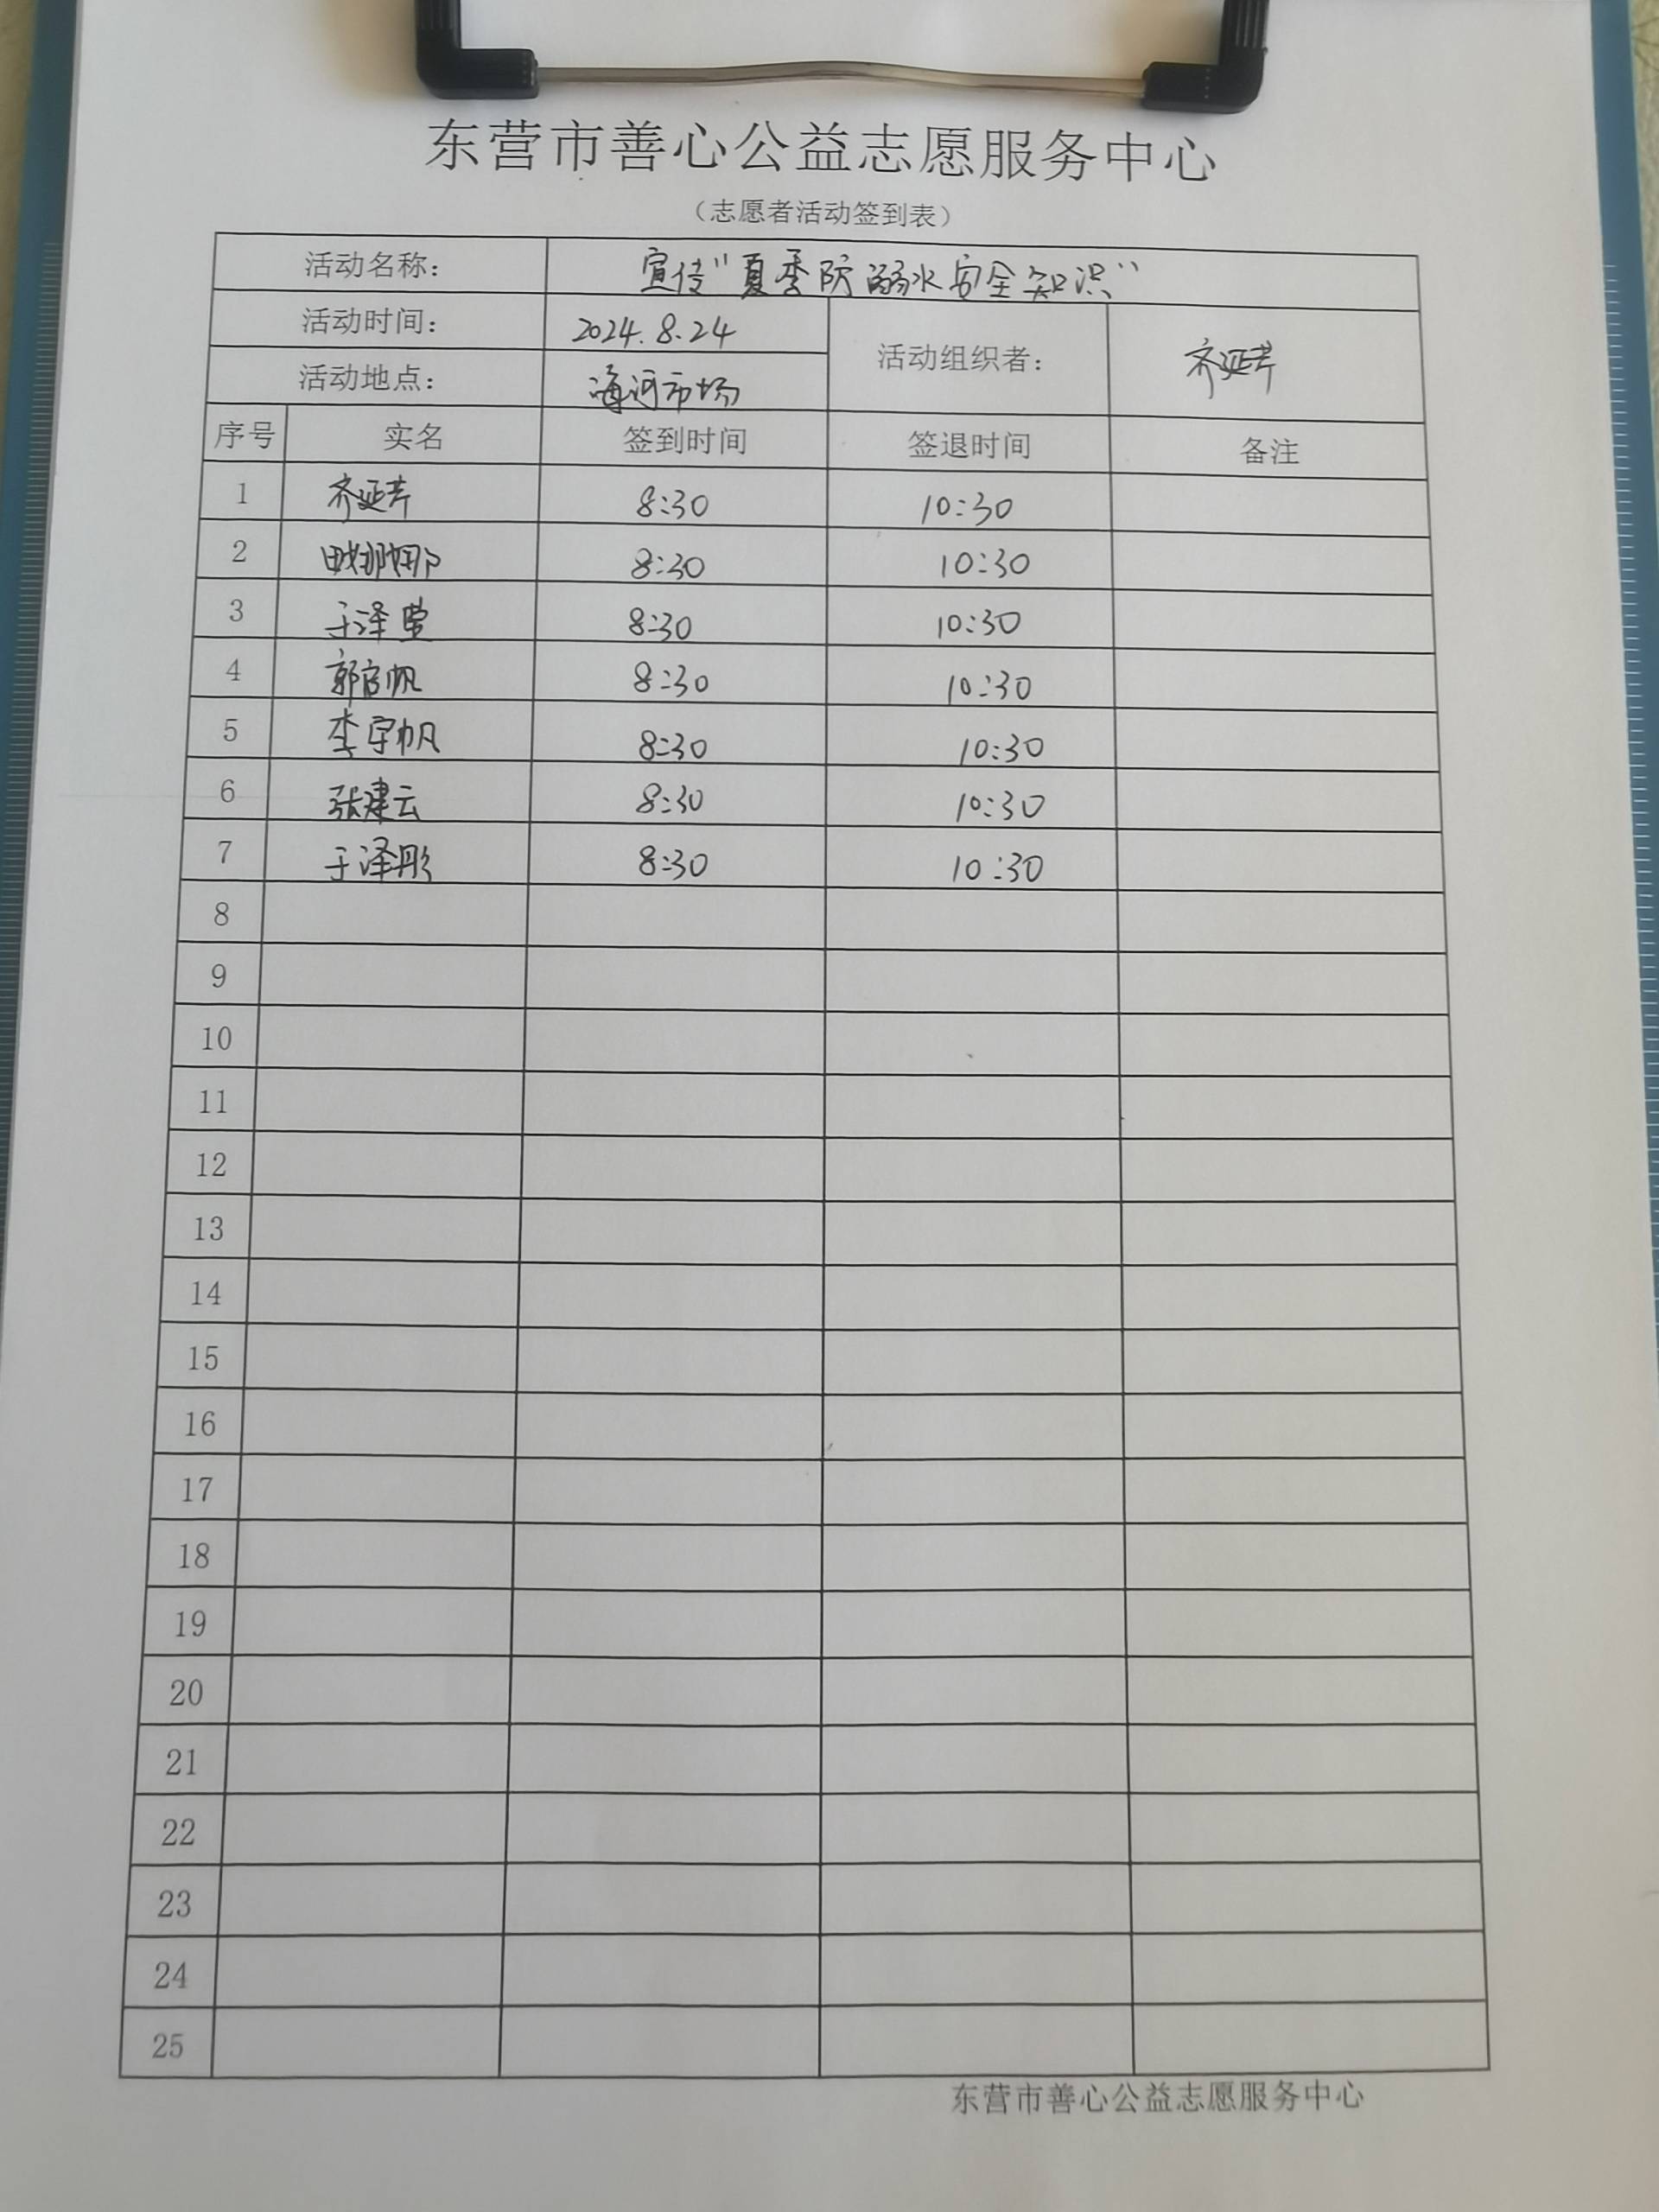 东营市善心公益志愿服务中心
（志愿者活动签到表）
活动名称： 宣传“夏季防溺水安全知识”
活动时间： 2024.8.24 活动组织者： 齐延芹
活动地点： 海河市场
序号 实名 签到时间 签退时间 备注
1 齐延芹 8:30 10:30
2 田娜娜 8:30 10:30
3 于泽莹 8:30 10:30
4 郭宫帆 8:30 10:30
5 李宇帆 8:30 10:30
6 张建云 8:30 10:30
7 于泽彤 8:30 10:30
8
9
10
11
12
13
14
15
16
17
18
19
20
21
22
23
24
25
东营市善心公益志愿服务中心